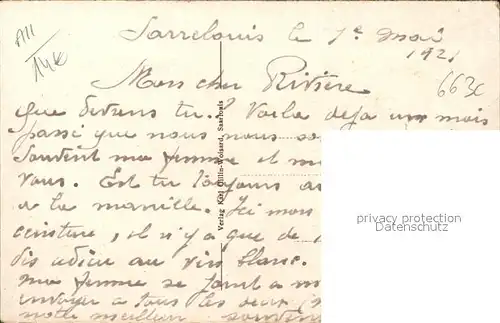 All
14€
663c
Sarrelouis le 1e Mai
1921
Mon cher Rivière
que deviens tu? Voila deja un mois
passé que nous nous
souvent ma femme et
vous. Est tu toujours
a la manille. Ici mon
ceinture, il n'y a que de
dis adieu au vin blanc.
ma femme se joint a
envoyer a tous les deux
notre meilleur souvenir
Verlag Karl Saarlouis
privacy protection
Datenschutz